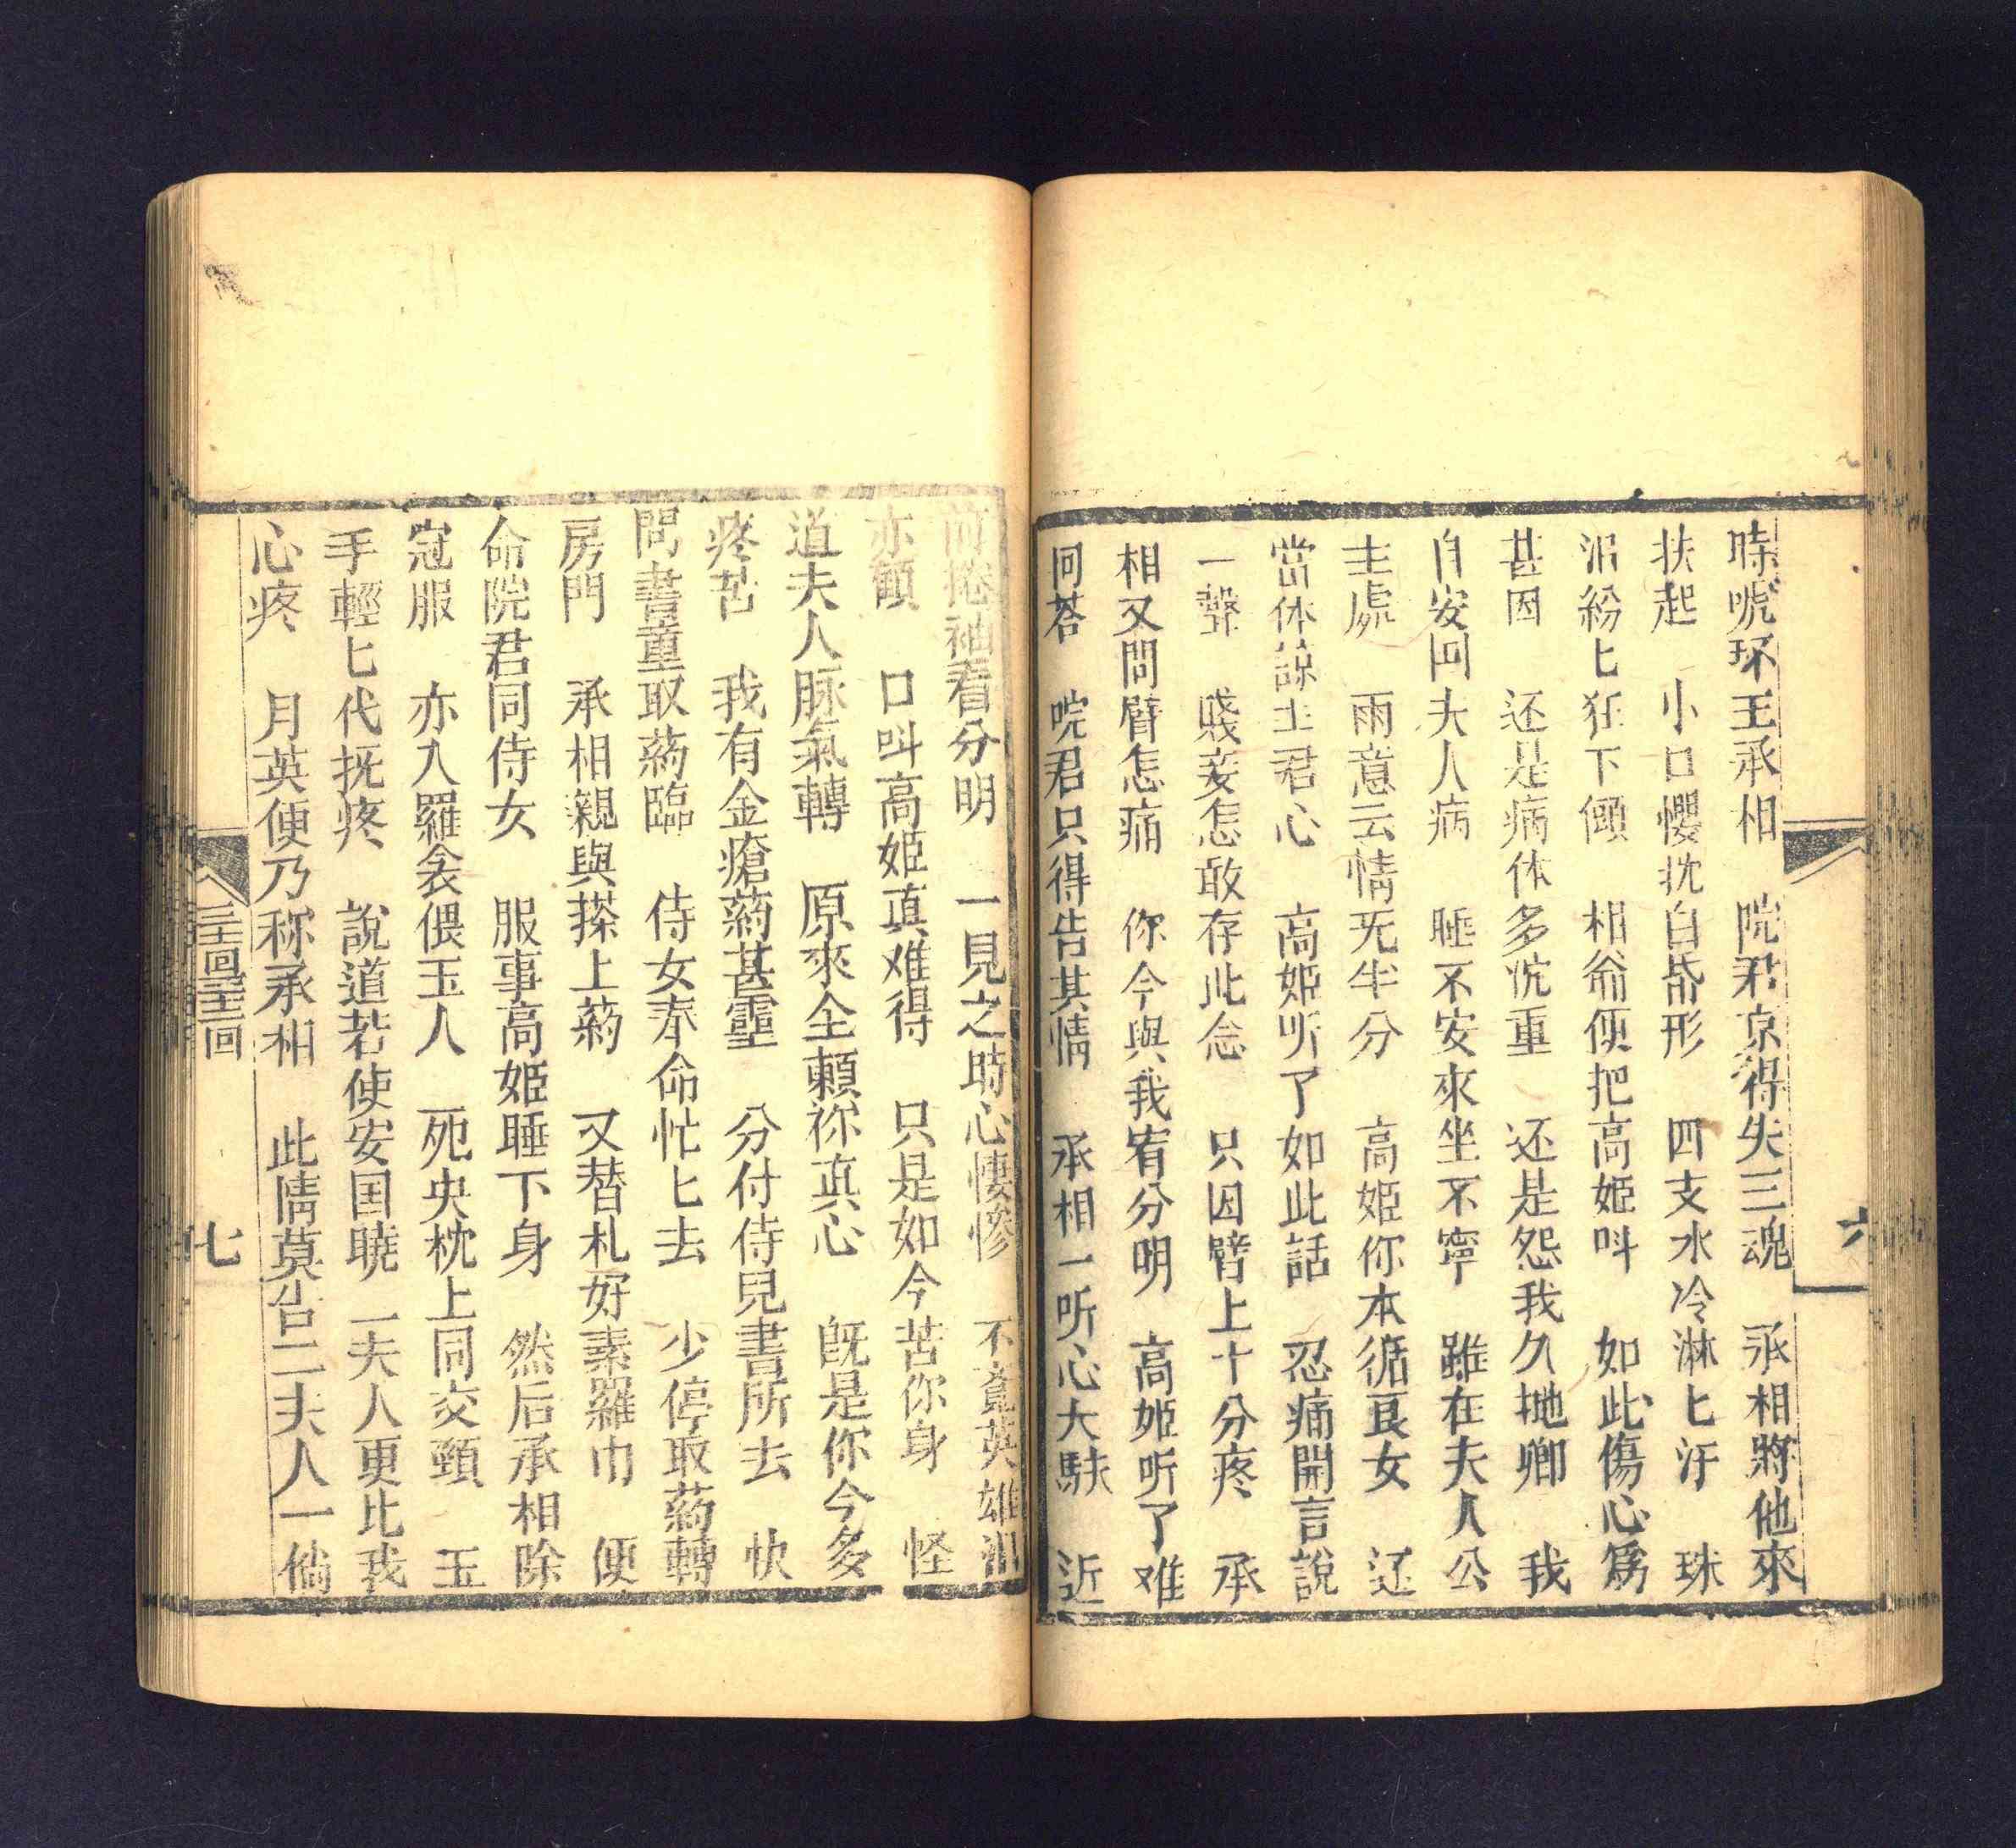 時唬坏王承相　院君京得失三魂　承相將他來
扶起　小口櫻桃白紙形　四支水冷淋匕汗　珠
淚紛匕往下傾　相爺便把高姬叫　如此傷心為
甚因　还是病体多沉重　还是怨我久抛卿　我
自安囘夫人病　睡不安來坐不寧　雖在夫人公
主處　雨意云情无半分　高姬你本循良女　还
當体諒主君心　高姬听了如此話　忍痛開言說
一聲　賤妾怎敢存此念　只因臂上十分疼　承
相又問臂怎痛　你今與我宥分明　高姬听了难
囘荅　院君只得告其情　承相一听心大駭　近
前捲袖看分明　一見之時心悽慘　不覺英雄淚
亦顛　口叫高姬真难得　只是如今苦你身　怪
道夫人脉氣轉　原來全賴祢真心　既是你今多
疼苦　我有金瘡葯甚靈　分付侍児書所去　快
問書童取葯臨　侍女奉命忙匕去　少停取葯轉
房門　承相親與搽上葯　又替札好素羅巾　便
命院君同侍女　服事高姬睡下身　然后承相除
冠服　亦入羅衾偎玉人　死央枕上同交頸　玉
手輕匕代抚疼　說道若使安囯曉　一夫人更比我
心疼　月英便乃称承相　此情莫告二夫人　一倘
六
七